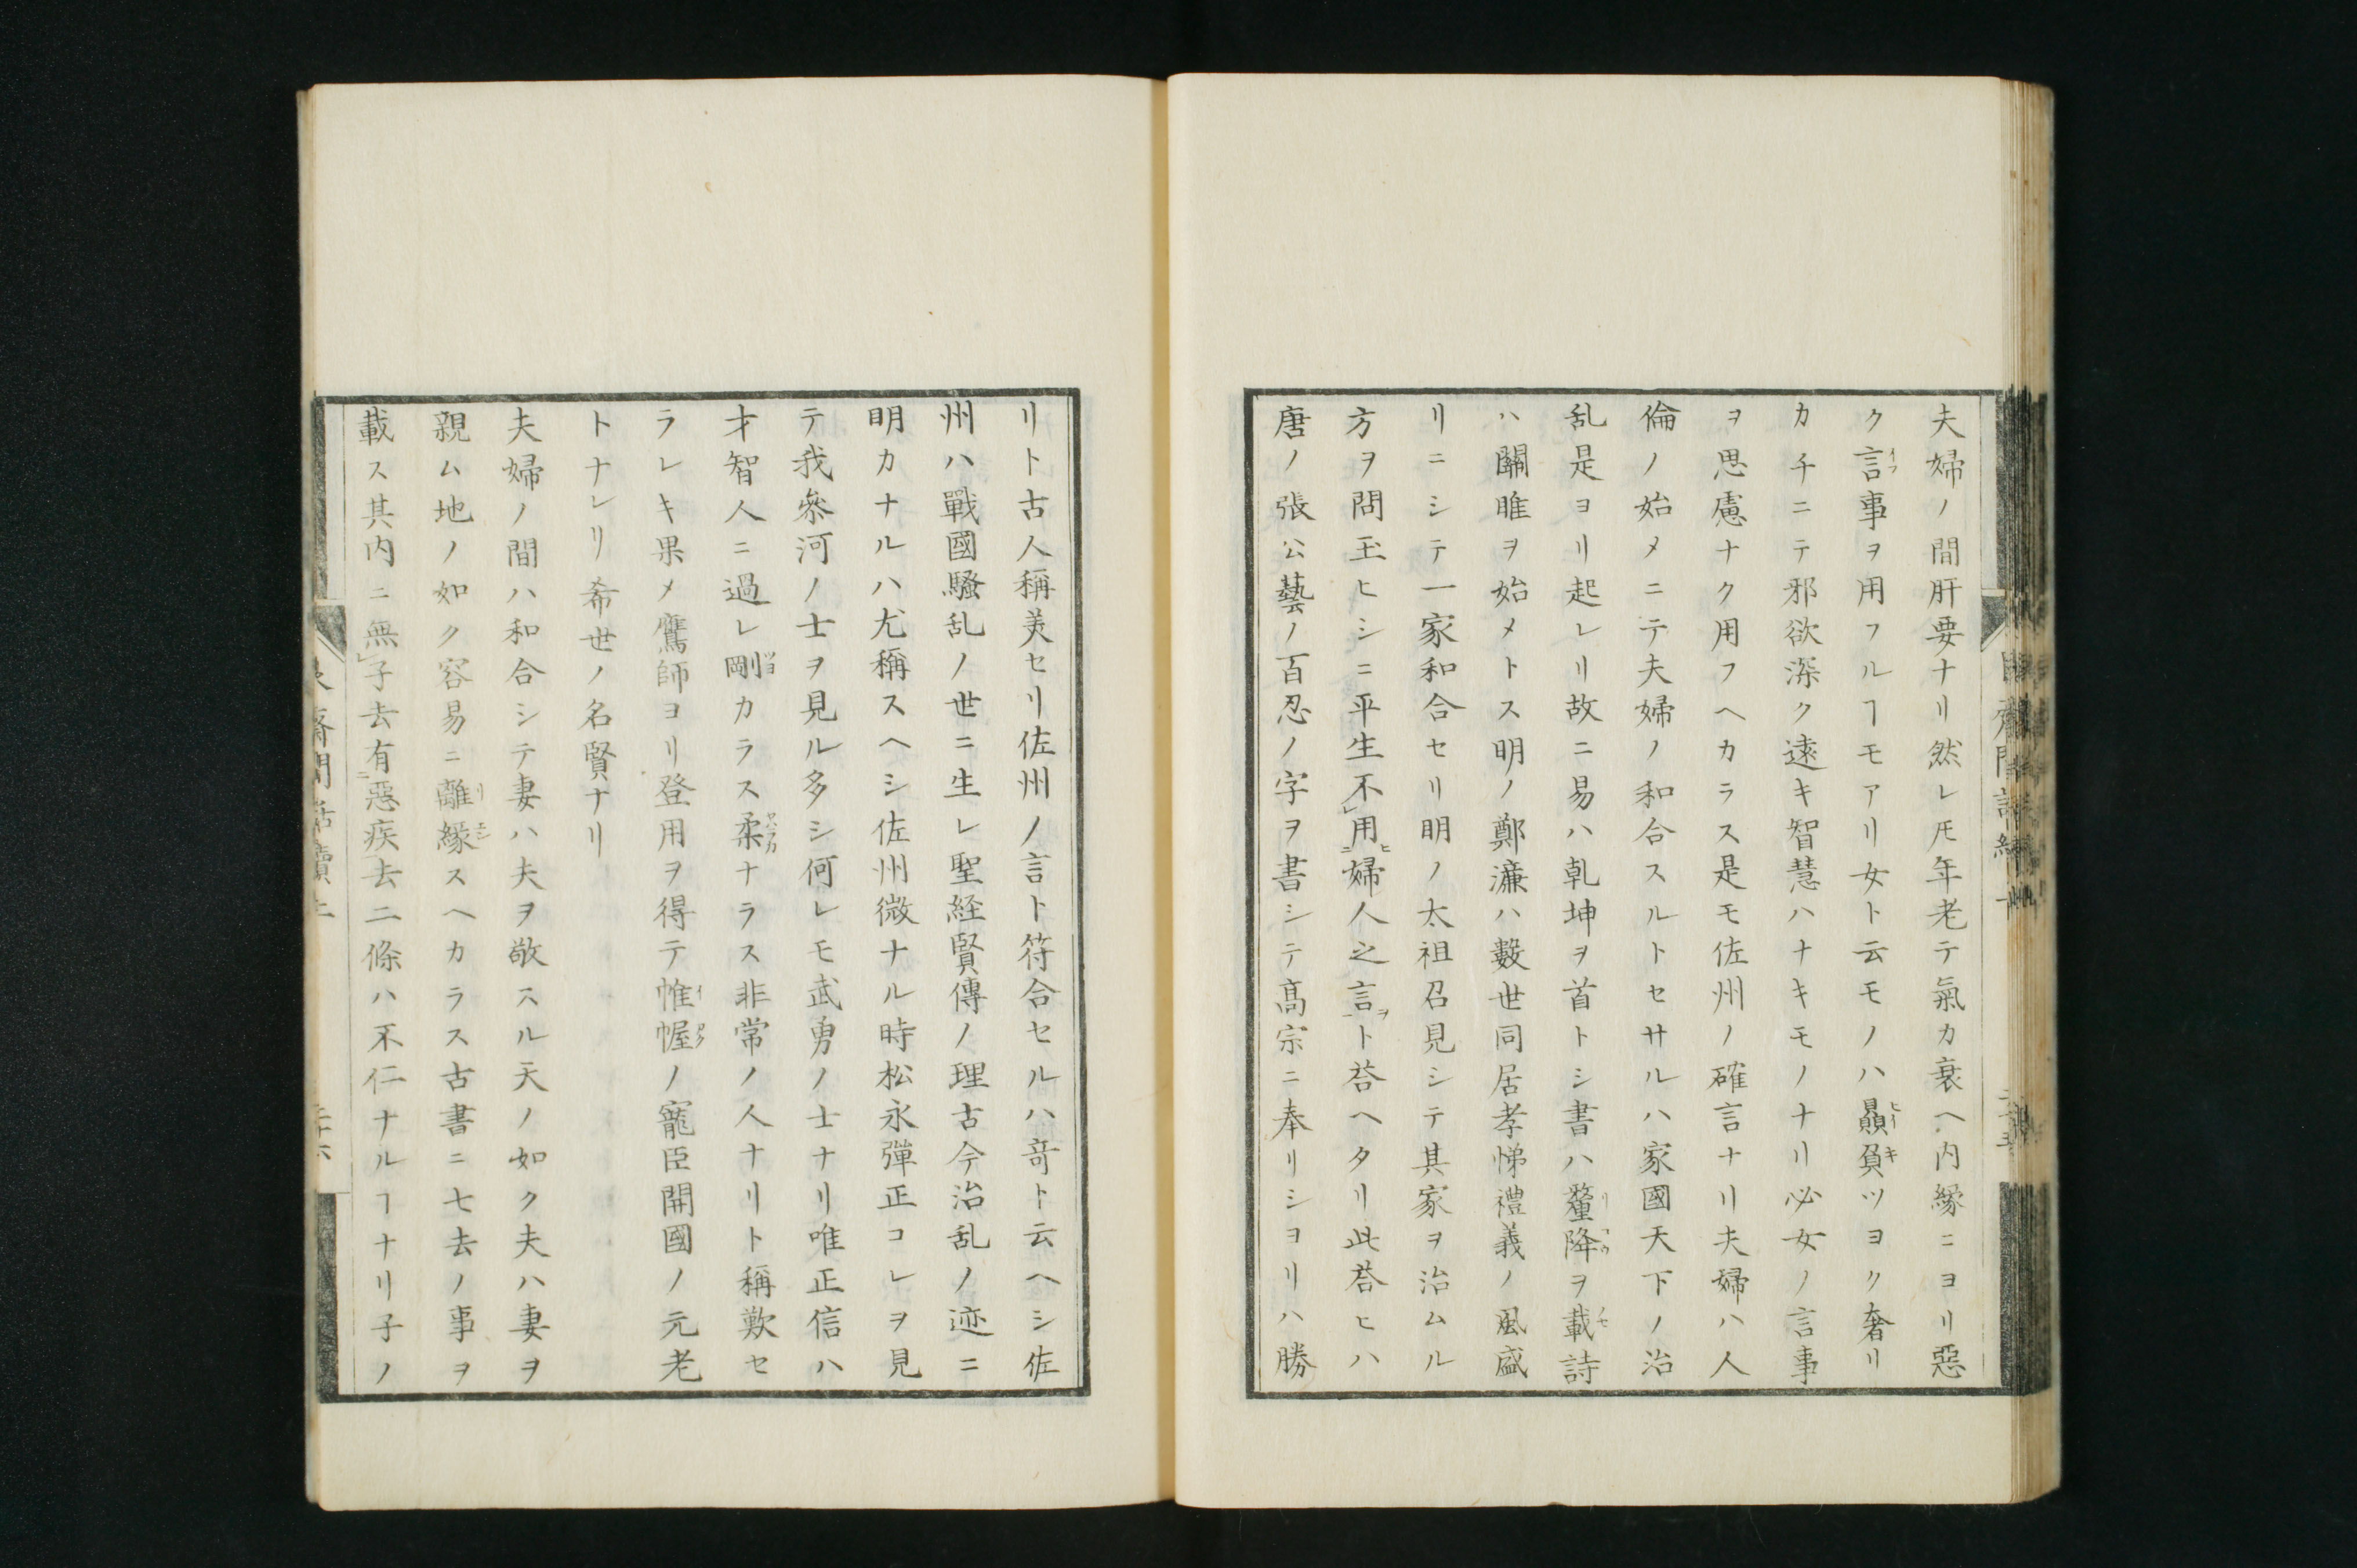 夫婦ノ間肝要ナリ然レ𪜈年老テ氣カ衰ヘ内縁ニヨリ惡
ク言事ヲ用フルヿモアリ女ト云モノハ贔負ツヨク奢リ
カチニテ邪欲深ク遠キ智慧ハナキモノナリ必女ノ言事
ヲ思慮ナク用フヘカラス是モ佐州ノ確言ナリ夫婦ハ人
倫ノ始メニテ夫婦ノ和合スルトセサルハ家國天下ノ治
乱是ヨリ起レリ故ニ易ハ乹坤ヲ首トシ書ハ釐降ヲ載詩
ハ關雎ヲ始メトス明ノ鄭濂ハ數世同居孝悌禮義ノ風盛
リニシテ一家和合セリ明ノ太祖召見シテ其家ヲ治ムル
方ヲ問玉ヒシニ平生不レ用ヒ二婦人之言一ヲト荅ヘタリ此荅ヒハ
唐ノ張公藝ノ百忍ノ字ヲ書シテ髙宗ニ奉リショリハ勝
リト古人稱美セリ佐州ノ言ト符合セルハ竒ト云ヘシ佐
州ハ戰國騷乱ノ世ニ生レ聖経賢傳ノ理古今治乱ノ迹ニ
明カナルハ尤稱スヘシ佐州微ナル時松永彈正コレヲ見
テ我參河ノ士ヲ見ル多シ何レモ武勇ノ士ナリ唯正信ハ
才智人ニ過レ剛カラス柔ナラス非常ノ人ナリト稱歎セ
ラレキ果メ鷹師ヨリ登用ヲ得テ帷幄ノ寵臣開國ノ元老
トナレリ希世ノ名賢ナリ
夫婦ノ間ハ和合シテ妻ハ夫ヲ敬スル天ノ如ク夫ハ妻ヲ
親ム地ノ如ク容易ニ離縁スヘカラス古書ニ七去ノ事ヲ
載ス其内ニ無レ子去有二惡疾一去二條ハ不仁ナルヿナリ子ノ
齋閒話續上